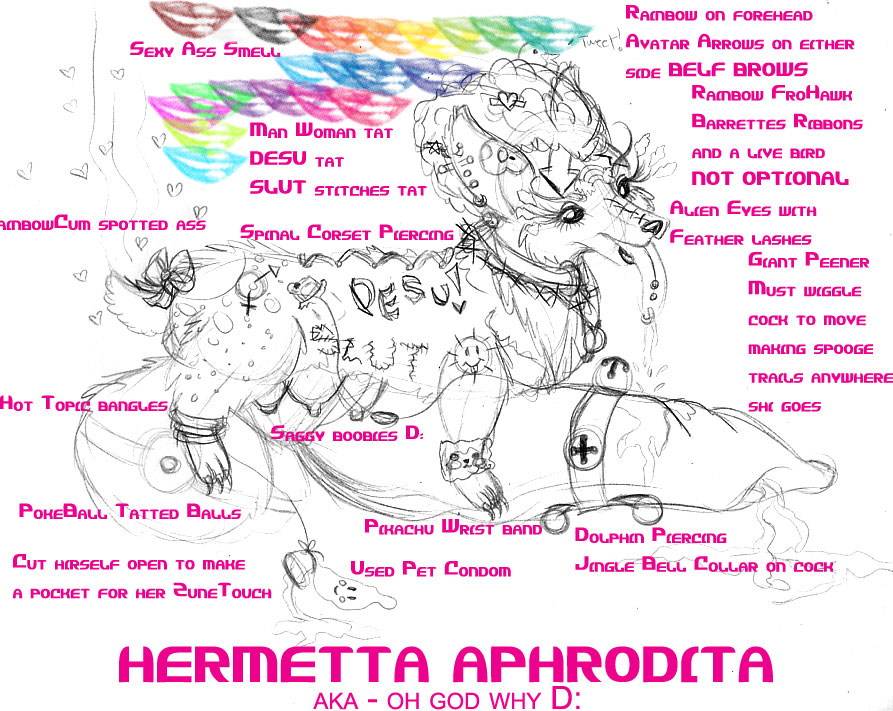 Sexy Ass Smell
Tweet!
Rainbow on forehead
Avatar Arrows on either
side BELF BROWS
Rainbow FroHawk
Barrettes Ribbons
and a live bird
NOT OPTIONAL
Man Woman tat
DESU tat
SLUT stitches tat
ainbowCum spotted ass
Spinal Corset Piercing
Alien Eyes with
Feather lashes
Giant Peener
Must wiggle
cock to move
making spooge
trails anywhere
shi goes
DESU!
SLUT
Hot Topic bangles
Saggy boobies D:
PokeBall Tatted Balls
Pikachu Wrist band
Dolphin Piercing
Jingle Bell Collar on cock
Cut hirself open to make
a pocket for her ZuneTouch
Used Pet Condom
HERMETTA APHRODITA
AKA - OH GOD WHY D: